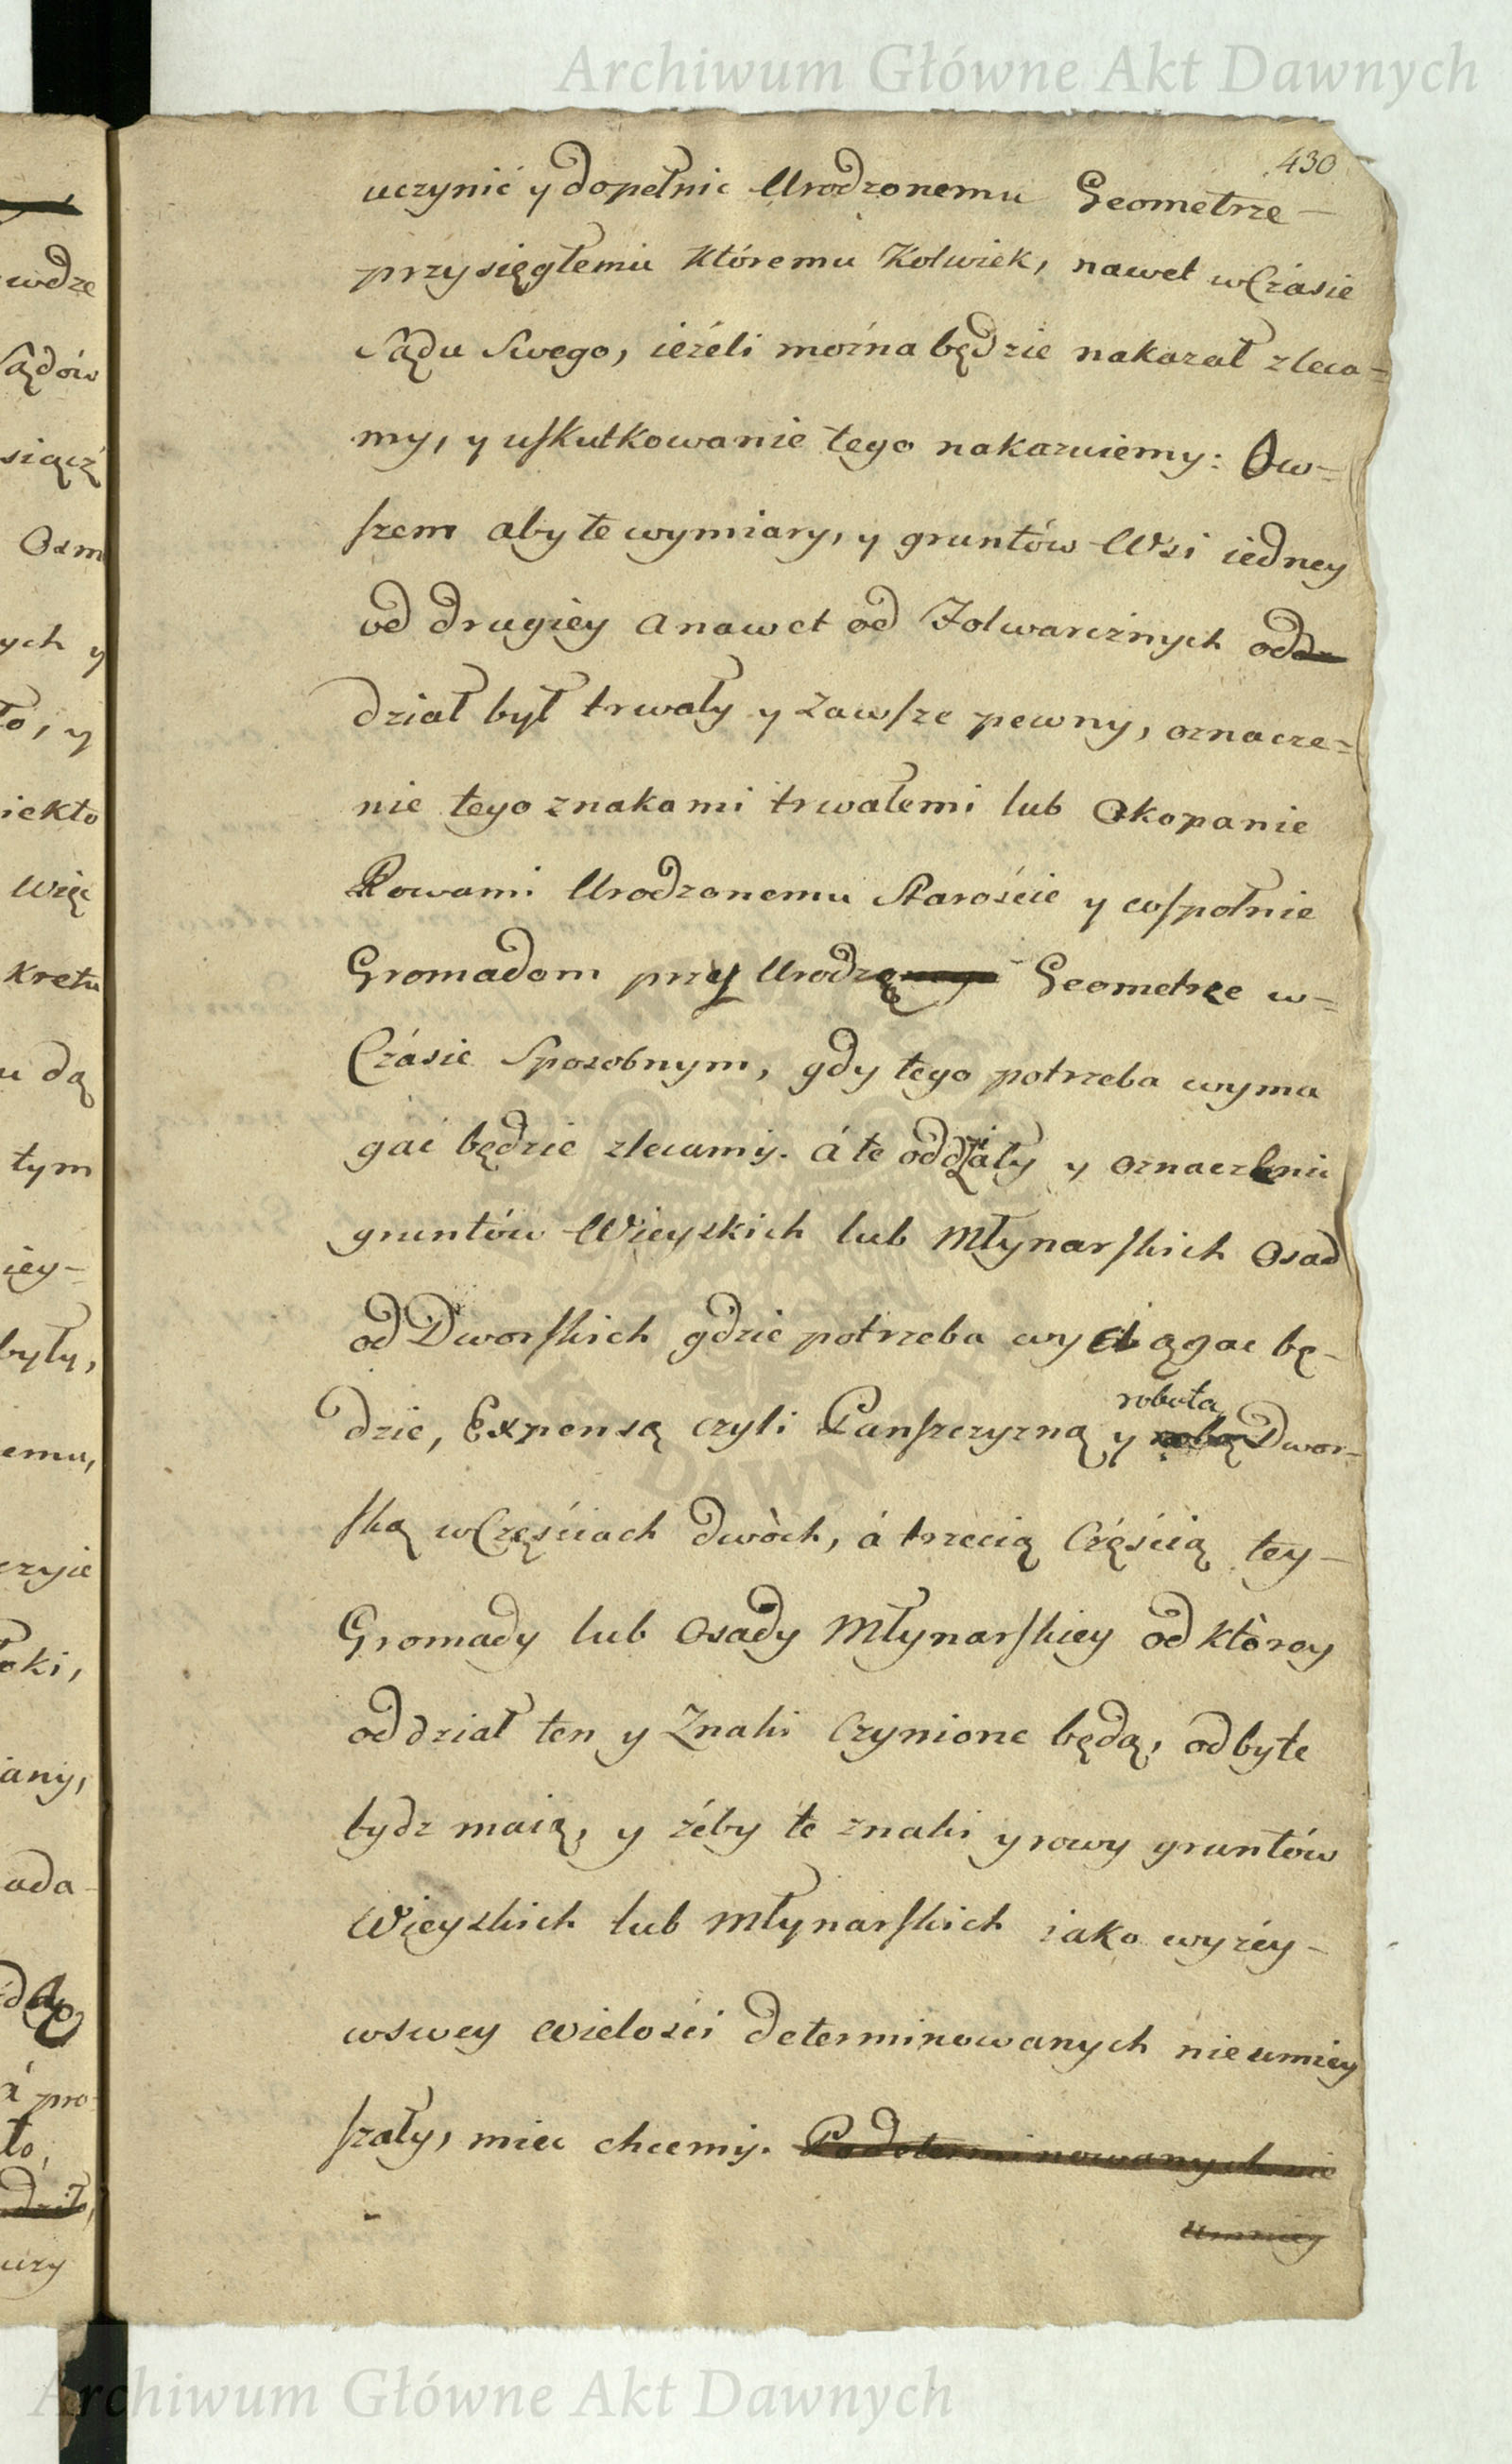 Archiwum Główne Akt Dawnych
430
uczynić y dopełnic Urodzonemu Geometrze –
przysięgłemu któremu kolwiek, nawet wCzásie
Sądu Swego, ieżéli można będzie nakazał zleca=
my, y uſkutkowanie tego nakazuiemy: Ow=
ſzem aby te wymiary, y gruntów Wsi iedney
od drugiéy a nawet od Folwarcznych odd
dział był trwały y Zawſze pewny, oznacze=
nie tego znakami trwałemi lub Okopanie
Rowami Urodzonemu Staroście y wſpołnie
Gromadom przy Urodzo Geometrze w=
Czásie Sposobnym, gdy tego potrzeba wyma
gać będzie zlecamy. á te oddziały y oznaczenie
gruntów Wieyskich lub Młynarſkich Osad
od Dworſkich gdzie potrzeba wyciągac bę–
robotą
dzie, Expensą czyli Panſzczyzną y Dwor–
ſką wCzęściach dwòch, á trzecią Częścią tey –
Gromady lub Osady Młynarſkiey od którey
oddział ten y Znaki Czynione będą, odbyte
bydz maią, y żéby te znaki y rowy gruntów
Wieyskich lub Młynarſkich iako wyzéy –
wswey Wielosci determinowanych nieumiey
ſzały, miec chcemy. Podeterminowanych nie
umniey
wdze
Sądów
siącż
Osm
ych y
ło, y
iekto
Więc
kretu
u dą
tym
iey=
były,
emu,
czyie
oki,
iany,
ada
á pro
to,
uzy
Archiwum Główne Akt Dawnych